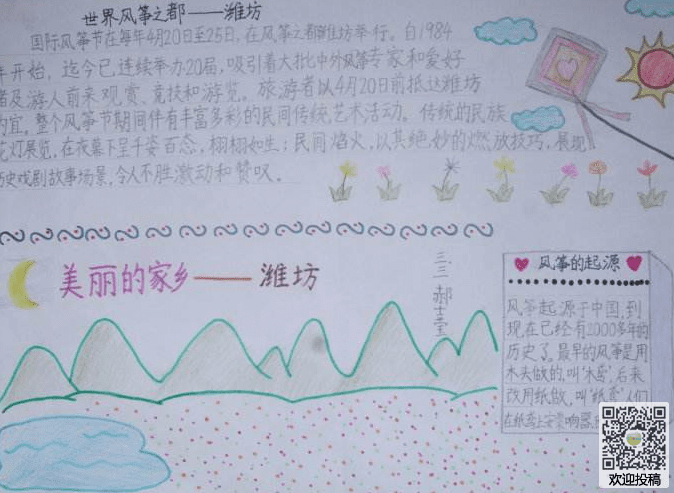 世界风筝之都——潍坊
国际风筝节在每年4月20日至25日,在风筝之都潍坊举行。自1984
年开始,迄今已连续举办20届,吸引着大批中外风筝专家和爱好
者及游人前来观赏、竞技和游览。旅游者以4月20日前抵达潍坊
为宜。整个风筝节期间伴有丰富多彩的民间传统艺术活动。传统的民族
花灯展览,在夜幕下呈千姿百态,栩栩如生;民间焰火,以其绝妙的燃放技巧,展现
历史戏剧故事场景,令人不胜激动和赞叹。
美丽的家乡——潍坊
三.三 郝士
风筝的起源
风筝起源于中国,到
现在已经有2000多年的
历史了。最早的风筝是用
木头做的,叫“木鸢”,后来
改用纸做,叫“纸鸢”,人们
在纸鸢上安
响器
欢迎投稿